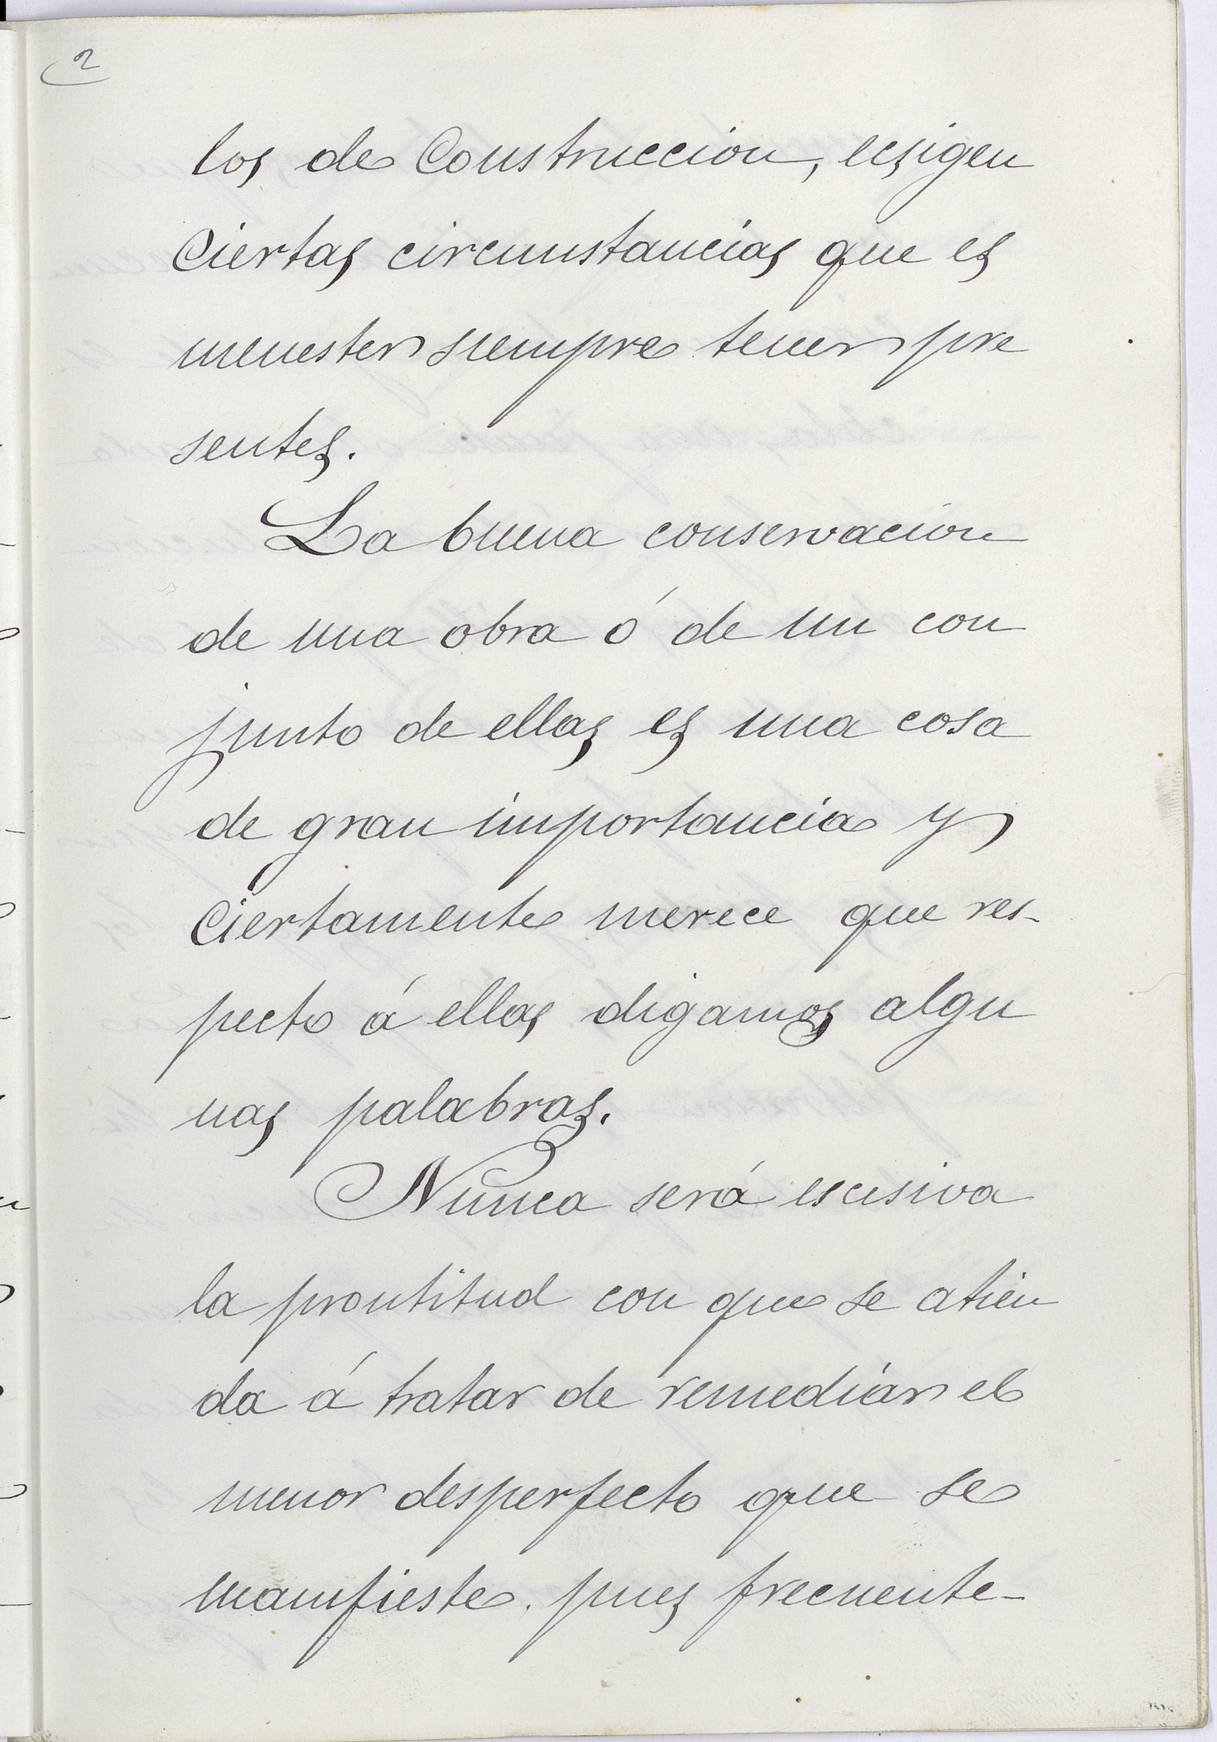 2
los de Construccion, ecsigen
Ciertas circunstancias que es
menester siempre tener pre
sentes.
La buena conservacion
de una obra ó de un con
junto de ellas es una cosa
de gran importancia y
Ciertamente merece que res-
pecto á ellas digamos algu
nas palabras.
Nunca será escesiva
la prontitud con que se atien
da á tratar de remediar el
menor desperfecto que se
manifieste. pues frecuente-